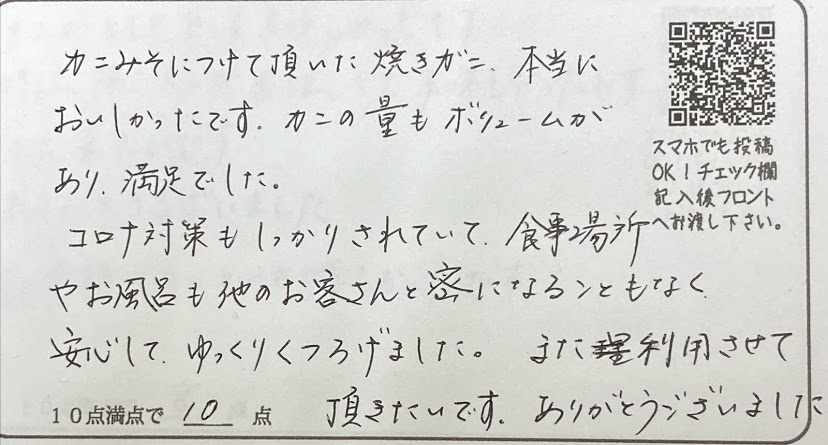 カニみそにつけて頂いた焼きガニ、本当に
おいしかったです。カニの量もボリュームが
あり、満足でした。
コロナ対策もしっかりされていて、食事場所
やお風呂も他のお客さんと密になることもなく
安心して、ゆっくりくつろげました。また利用させて
頂きたいです。ありがとうございました
スマホでも投稿
OK！チェック欄
記入後フロント
へお渡し下さい。
10点満点で 10 点